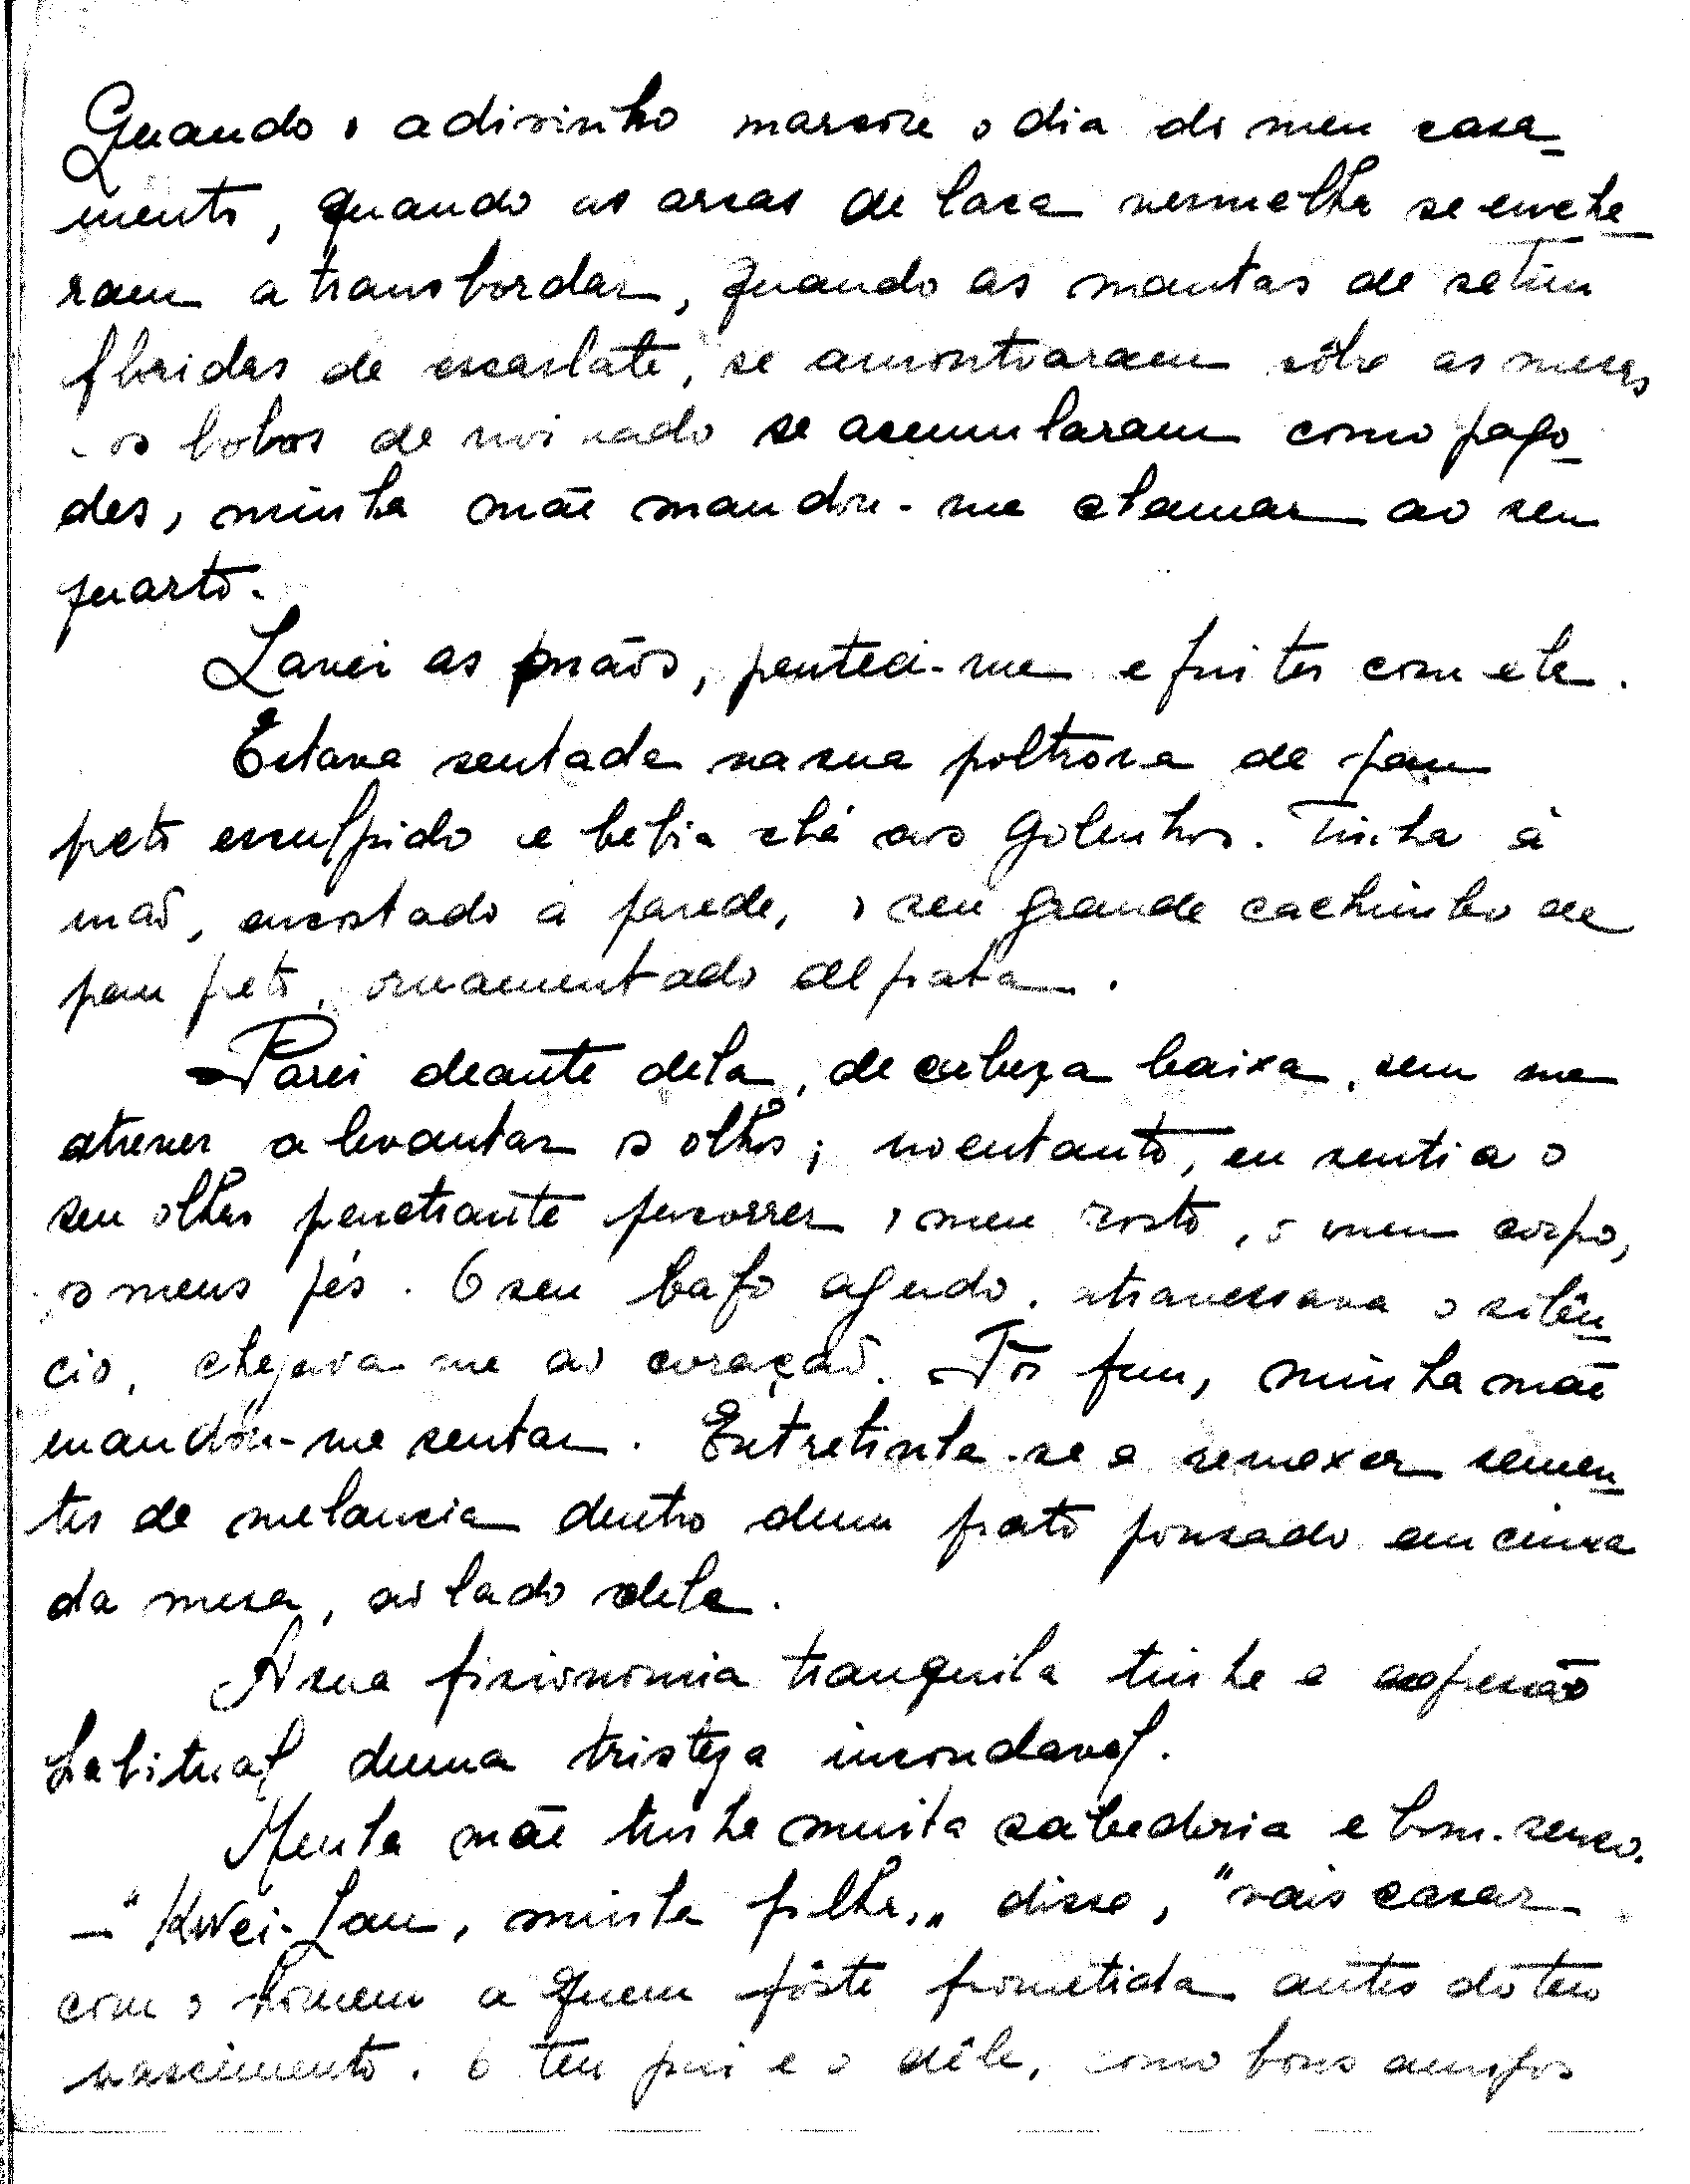 Quando o adivinho marcou o dia do meu casa-
mento, quando as arcas de laca vermelha se enche-
ram a transbordar, quando as mantas de setim
floridas de escarlate, se amontoaram sôbre as mesas
e os bolos de noivado se acumularam como pago-
des, minha mãe mandou-me chamar ao seu
quarto.
Lavei as mãos, penteei-me e fui ter com ela.
Estava sentada na sua poltrona de pau
preto esculpido e bebia chá aos golinhos. Tinha à
mão, encostado à parede, o seu grande cachimbo de
pau preto, ornamentado de prata.
Parei deante dela, de cabeça baixa, sem me
atrever a levantar os olhos; no entanto, eu sentia o
seu olhar penetrante percorrer o meu rosto, o meu corpo,
os meus pés. O seu bafo agudo, atravessava o silên-
cio, chegava-me ao coração. Por fim, minha mãe
mandou-me sentar. Entretinha-se a remexer semen-
tes de melancia dentro dum prato pousado em cima
da mesa, ao lado dela.
A sua fisionomia tranquila tinha a expressão
habitual duma tristeza insondavel.
Menha mãe tinha muita sabedoria e bom-senso.
—"Kwei-Lan, minha filha," disse, "vais casar
com o homem a quem fôste prometida antes do teu
nascimento. O teu pai e o dêle, como bons amigos